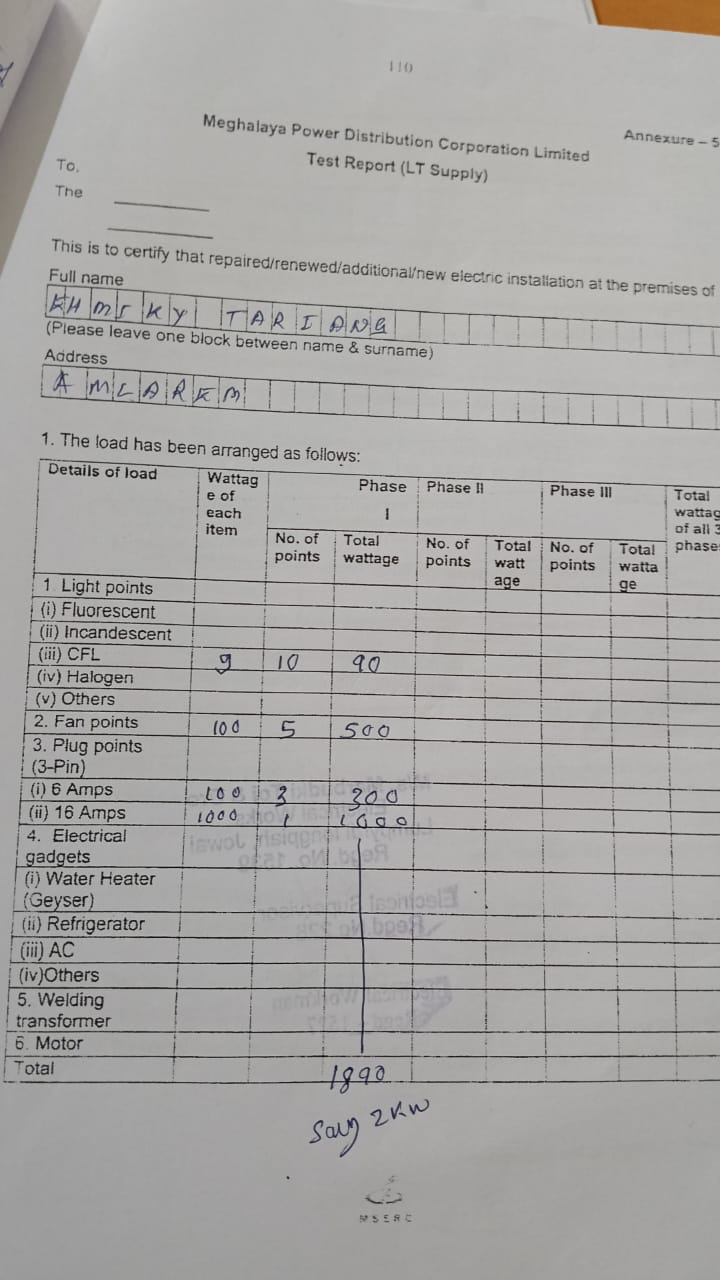 110
Annexure – 5
Meghalaya Power Distribution Corporation Limited
Test Report (LT Supply)
To,
The
This is to certify that repaired/renewed/additional/new electric installation at the premises of
Full name
TARIANG
(Please leave one block between name & surname)
Address
AMLAREM
1. The load has been arranged as follows:
Details of load Wattag e of each item Phase I Phase II Phase III Total wattag of all 3 phase
No. of points Total wattage No. of points Total watt age No. of points Total watta ge
1 Light points
(i) Fluorescent
(ii) Incandescent
(iii) CFL 9 10 90
(iv) Halogen
(v) Others
2. Fan points 100 5 500
3. Plug points
(3-Pin)
(i) 6 Amps 100 3 300
(ii) 16 Amps 1000 1 1000
4. Electrical
gadgets
(i) Water Heater
(Geyser)
(ii) Refrigerator
(iii) AC
(iv)Others
5. Welding
transformer
6. Motor
Total 1890
Say 2KW
MSERC